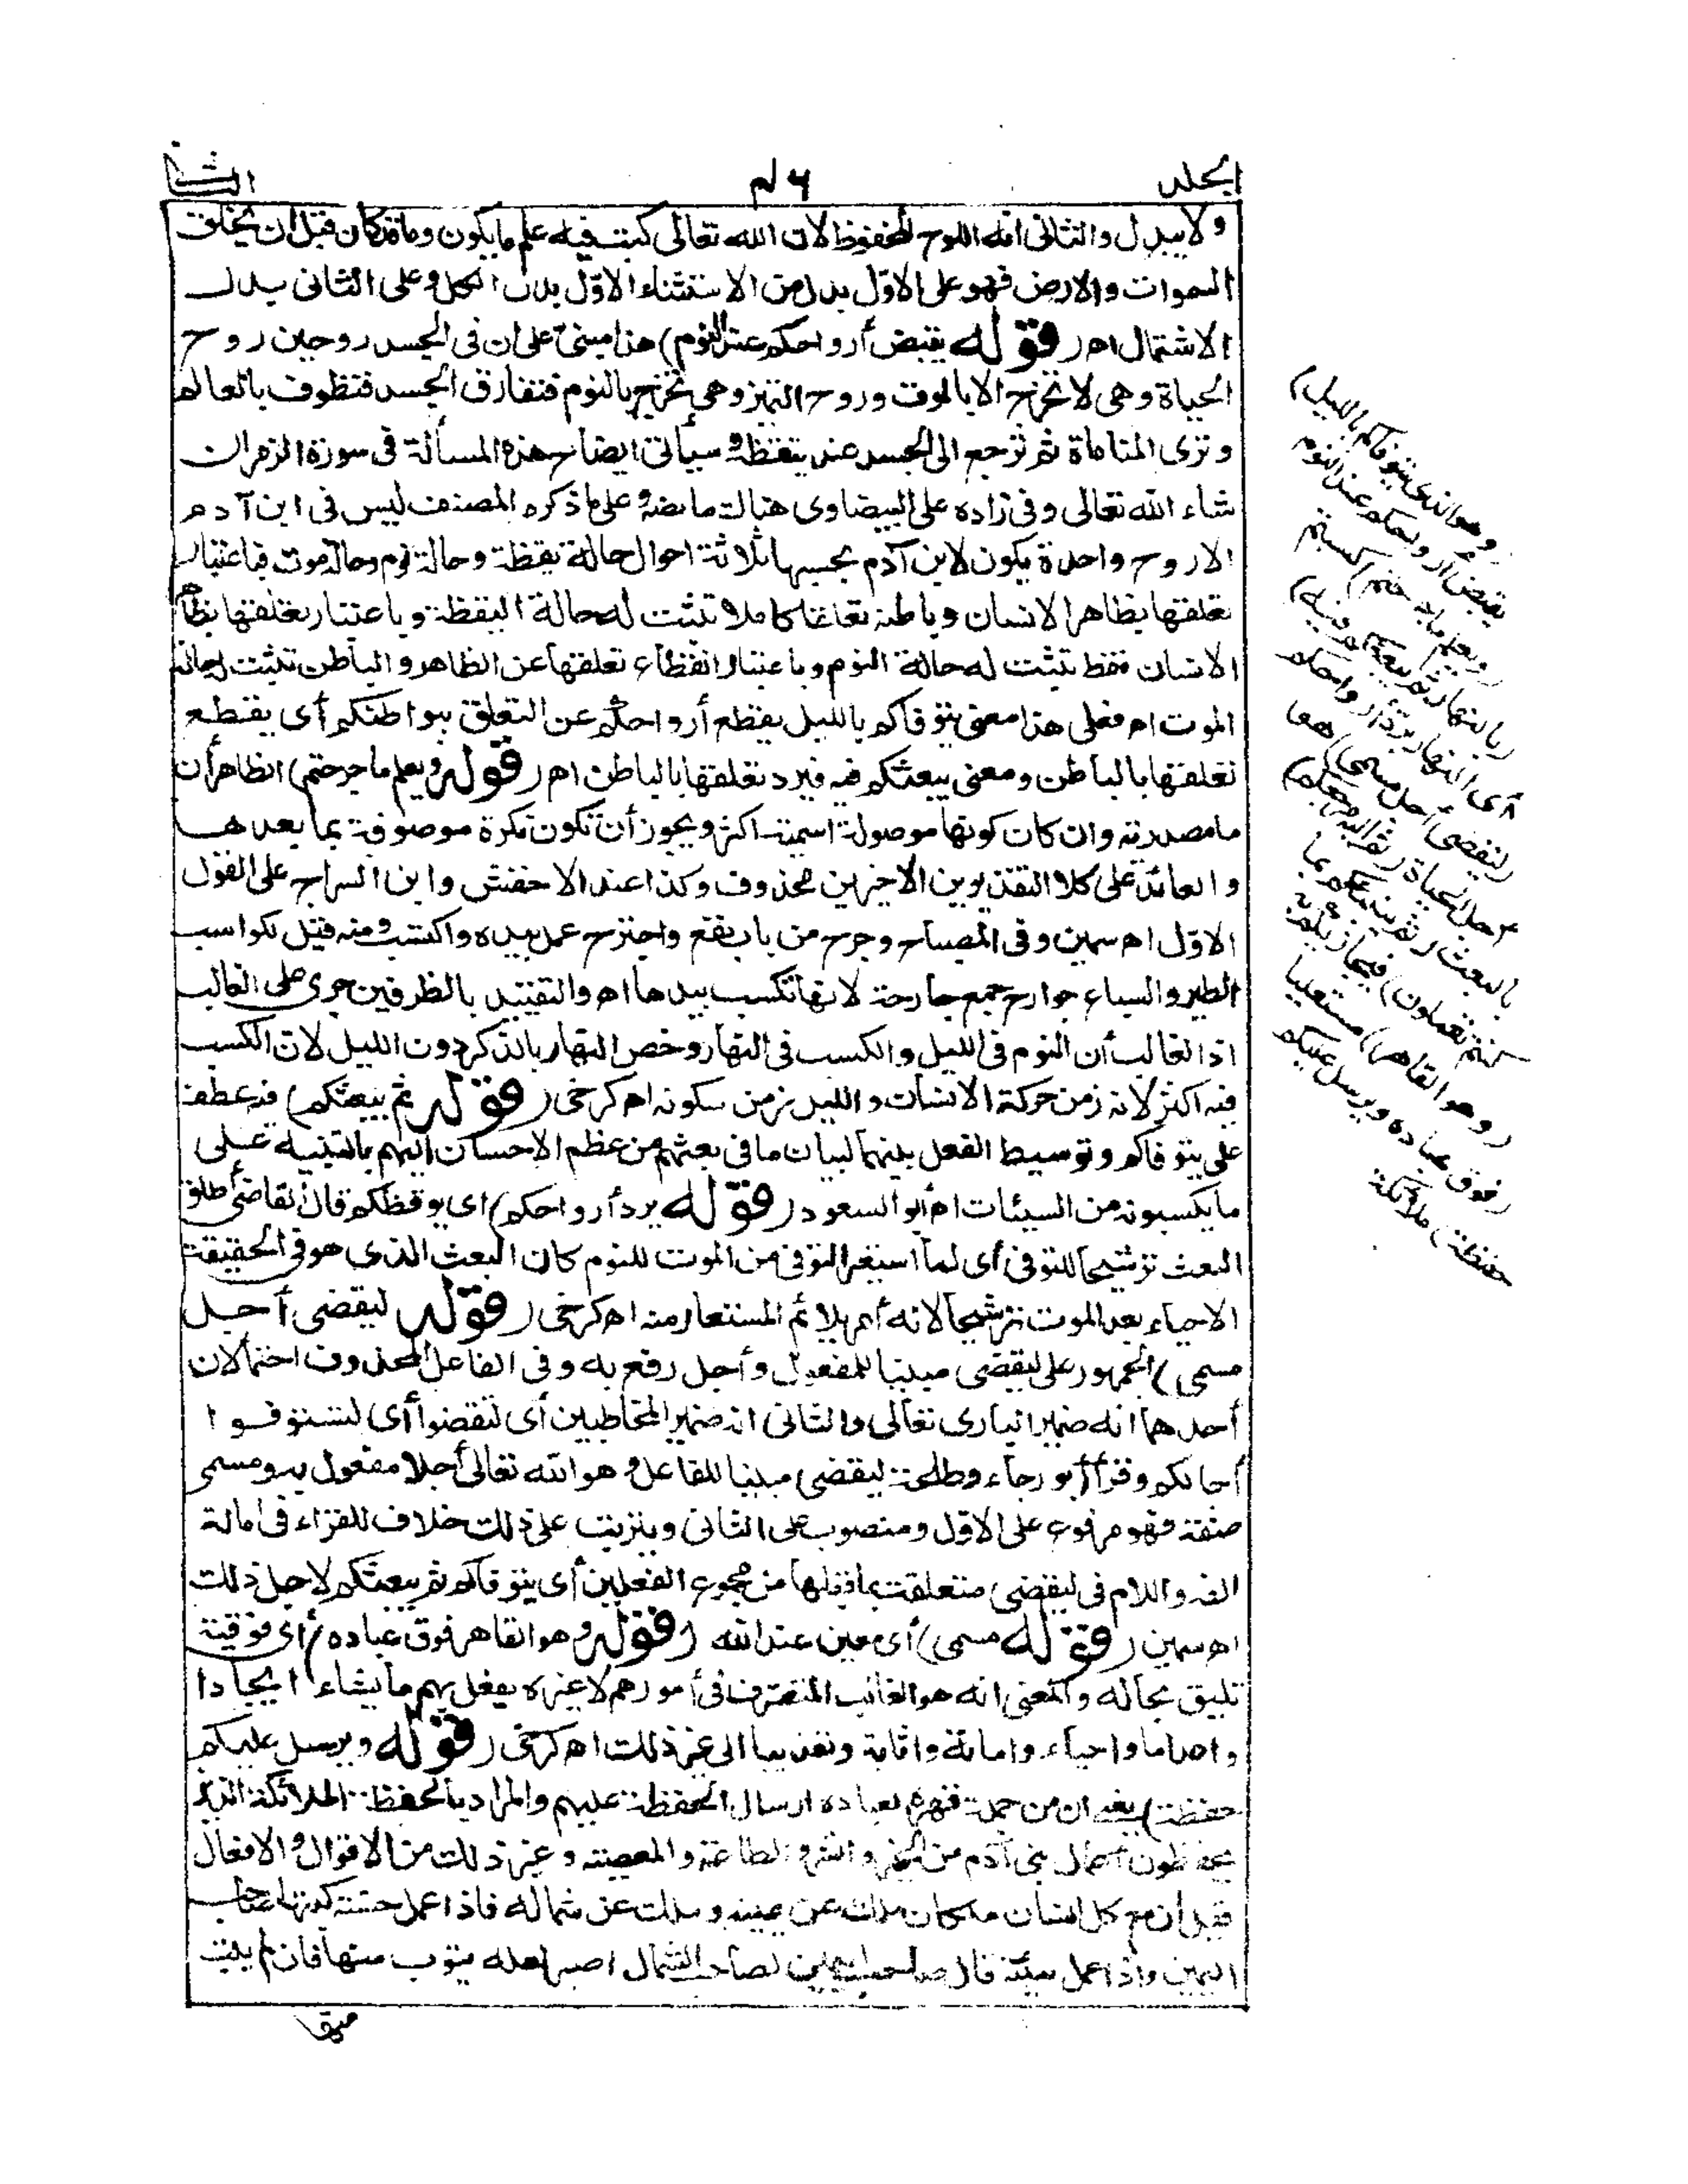 المجلد
٤٦
الثانى
ولا يبدل والثانى انه اللوح المحفوظ لان الله تعالى كتب فيه علم ما يكون وما قد كان قبل ان يخلق
السموات والارض فهو على الاوّل بدل من الاستثناء الاوّل بدل الكل وعلى الثانى بدل
الاشتمال اه (قوله يقبض أرواحكم عند النوم) هذا مبنىّ على ان فى الجسد روحين روح
الحياة وهى لا تخرج الا بالموت وروح التمييز وهى تخرج بالنوم فتفارق الجسد فتطوف بالعالم
وترى المنامات ثم ترجع الى الجسد عند تيقظه وسيأتى ايضاح هذه المسألة فى سورة الزمر ان
شاء الله تعالى وفى زاده على البيضاوى هناك ما نصه وعلى ما ذكره المصنف ليس فى ابن آدم
الا روح واحدة يكون لابن آدم بحسبها ثلاثة احوال حالة يقظة وحالة نوم وحالة موت فباعتبار
تعلقها بظاهر الانسان وباطنه تعلقا كاملا تثبت له حالة اليقظة وباعتبار تعلقها بظاهر
الانسان فقط تثبت له حالة النوم وباعتبار انقطاع تعلقها عن الظاهر والباطن تثبت له حالة
الموت اه فعلى هذا معنى يتوفاكم بالليل يقطع أرواحكم عن التعلق ببواطنكم أى يقطع
تعلقها بالباطن ومعنى يبعثكم فيه يرد تعلقها بالباطن اه (قوله ويعلم ما جرحتم) الظاهر أن
ما مصدرية وان كان كونها موصولة اسمية اكثر ويجوز أن تكون نكرة موصوفة بما بعدها
والعائد على كلا التقديرين الاخيرين محذوف وكذا عند الاخفش وابن السراج على القول
الاوّل اه سمين وفى المصباح وجرح من باب نفع واجترح عمل بيده واكتسب ومنه قيل لكواسب
الطير والسباع جوارح جمع جارحة لانها تكسب بيدها اه والتقييد بالظرفين جرى على الغالب
اذ الغالب أن النوم فى الليل والكسب فى النهار وخص النهار بالذكر دون الليل لان الكسب
فيه اكثر لانه زمن حركة الانسان والليل زمن سكونه اه كرخى (قوله ثم يبعثكم) فيه عطف
على يتوفاكم وتوسيط الفعل بينهما لبيان ما فى بعثهم من عظم الاحسان اليهم بالتنبيه على
ما يكسبونه من السيئات اه أبو السعود (قوله يرد أرواحكم) اى يوقظكم قال القاضى أطلق
البعث ترشيحا للتوفى أى لما استعير التوفى من الموت للنوم كان البعث الذى هو فى الحقيقة
الاحياء بعد الموت ترشيحا لانه أمر يلائم المستعار منه اه كرخى (قوله ليقضى أجل
مسمى) الجمهور على ليقضى مبنيا للمفعول وأجل رفع به وفى الفاعل المحذوف احتمالان
أحدهما انه ضمير البارى تعالى والثانى انه ضمير المخاطبين أى لتقضوا أى لتستوفوا
آجالكم وقرأ أبو رجاء وطلحة ليقضى مبنيا للفاعل وهو الله تعالى أجلا مفعول به ومسمى
صفة فهو مرفوع على الاوّل ومنصوب على الثانى ويترتب على ذلك خلاف للقراء فى امالة
الفه واللام فى ليقضى متعلقة بما قبلها من مجموع الفعلين أى يتوفاكم ثم يبعثكم لاجل ذلك
اه سمين (قوله مسمى) أى معين عند الله (قوله وهو القاهر فوق عباده) أى فوقية
تليق بحاله والمعنى انه هو الغالب المتصرف فى أمورهم لا غيره يفعل بهم ما يشاء ايجادا
واعداما واحياء واماتة واثابة وتعذيبا الى غير ذلك اه كرخى (قوله ويرسل عليكم
حفظة) يعنى ان من جملة قهره لعباده ارسال الحفظة عليهم والمراد بالحفظة الملائكة الذين
يحفظون أعمال بنى آدم من الخير والشر والطاعة والمعصية وغير ذلك من الاقوال والافعال
قيل ان مع كل انسان ملكان ملك عن يمينه وملك عن شماله فاذا عمل حسنة كتبها صاحب
اليمين واذا عمل سيئة قال صاحب اليمين لصاحب الشمال اصبر لعله يتوب منها فان لم يتب
منها
(وهو الذى يتوفاكم بالليل)
يقبض أرواحكم عند النوم
(ويعلم ما جرحتم) كسبتم
(بالنهار ثم يبعثكم فيه)
أى النهار برد أرواحكم
(ليقضى أجل مسمى) هو
أجل الحياة (ثم اليه مرجعكم)
بالبعث (ثم ينبئكم بما
كنتم تعملون) فيجازيكم به
(وهو القاهر) مستعليا
(فوق عباده ويرسل عليكم
حفظة) ملائكة